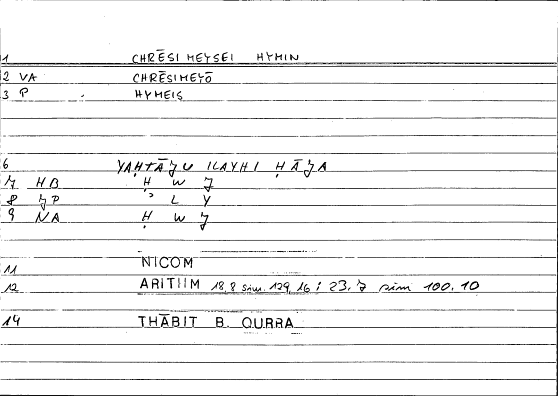 1 CHRĒSIMEYSEI HYMIN
2 VA CHRĒSIMEYŌ
3 P HYMEIS
6 YAḤTĀJU ILAYHI ḤĀJA
7 HB Ḥ W J
8 JP ʾ L Y
9 NA Ḥ W J
11 NICOM
12 ARITIIM 18, 8 sim. 129, 16 ; 23, 7 sim 100, 10
14 THĀBIT B. QURRA